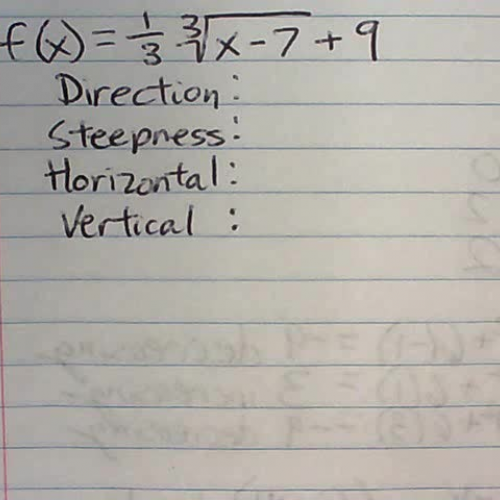 f(x) = 1/3 ∛(x - 7) + 9
Direction:
Steepness:
Horizontal:
Vertical :